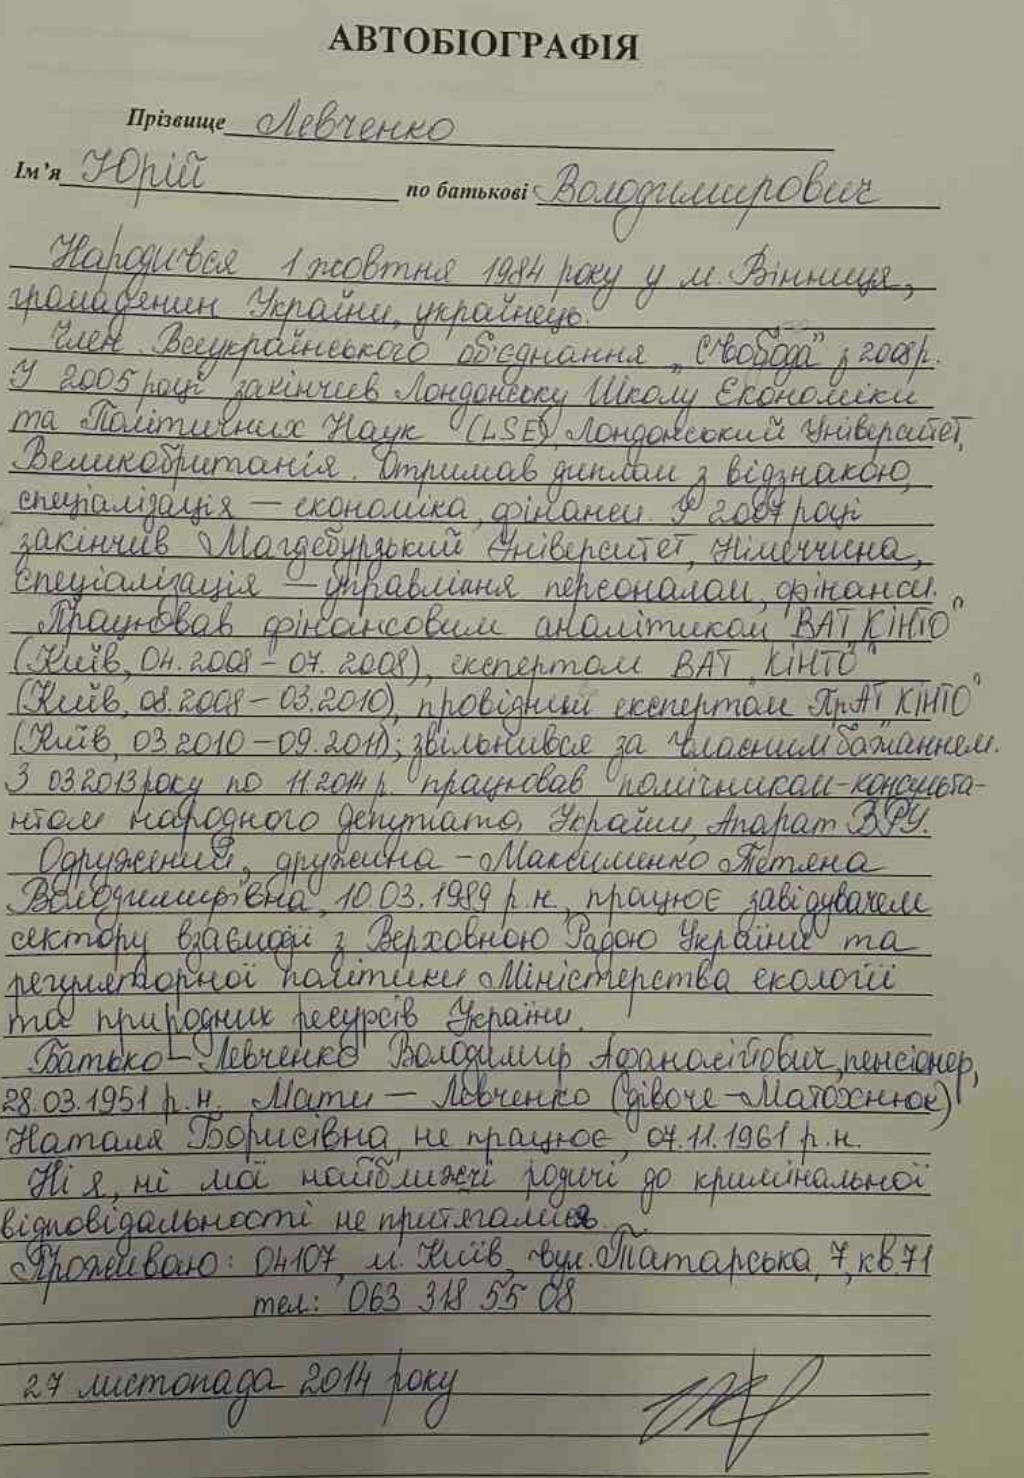 АВТОБІОГРАФІЯ
Прізвище Левченко
Ім'я Юрій по батькові Володимирович
Народився 1 жовтня 1984 року у м. Вінниця,
громадянин України, українець.
Член Всеукраїнського об'єднання „Свобода" з 2008 р.
У 2005 році закінчив Лондонську Школу Економіки
та Політичних Наук (LSE), Лондонський Університет,
Великобританія. Отримав диплом з відзнакою,
спеціалізація — економіка, фінанси. У 2007 році
закінчив Магдебурзький Університет, Німеччина,
спеціалізація — управління персоналом, фінанси.
Працював фінансовим аналітиком ВАТ „КІНТО"
(Київ, 04.2008 – 07.2008), експертом ВАТ „КІНТО"
(Київ, 08.2008 – 03.2010), провідним експертом ПрАТ „КІНТО"
(Київ, 03.2010 – 09.2011); звільнився за власним бажанням.
З 03.2013 року по 11.2014 р. працював помічником-консульта-
нтом народного депутата України, Апарат ВРУ.
Одружений, дружина – Максименко Тетяна
Володимирівна, 10.03.1989 р.н., працює завідувачем
сектору взаємодії з Верховною Радою України та
регуляторної політики Міністерства екології
та природних ресурсів України.
Батько – Левченко Володимир Афанасійович, пенсіонер,
28.03.1951 р.н. Мати — Левченко (дівоче –
Наталя Борисівна, не працює, 07.11.1961 р.н.
Ні я, ні мої найближчі родичі до кримінальної
відповідальності не притягались.
Проживаю: 04107, м. Київ, вул. Татарська, 7, кв.71
тел: 063 318 55 08
27 листопада 2014 року